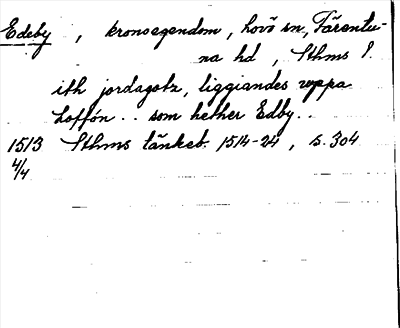 Edeby, kronoegendom, Lovö sn, Färentu-
na hd, Sthms l.
ith jordagotz, liggiandes uppa
Loffön .. som hether Edby..
1513 Sthms tänkeb. 1514-24, s. 304
4/4